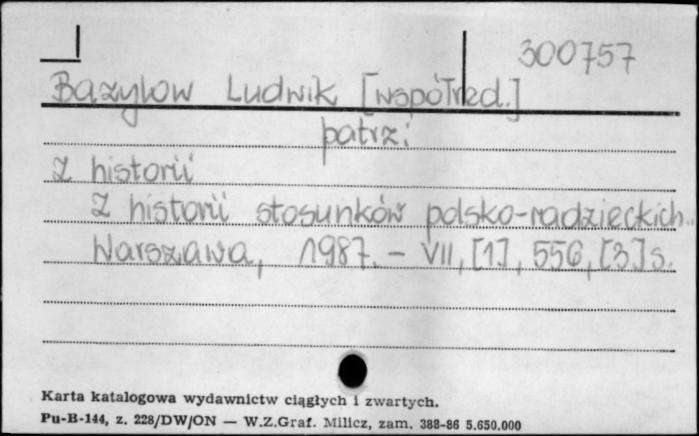 300757
Bazylow Ludwik [współred.]
patrz:
Z historii
Z historii stosunków polsko-radzieckich..
Warszawa, 1987. - VII, [1], 556, [3] s.
Karta katalogowa wydawnictw ciągłych i zwartych.
Pu-B-144, z. 228/DW/ON — W.Z.Graf. Milicz, zam. 388-86 5.650.000